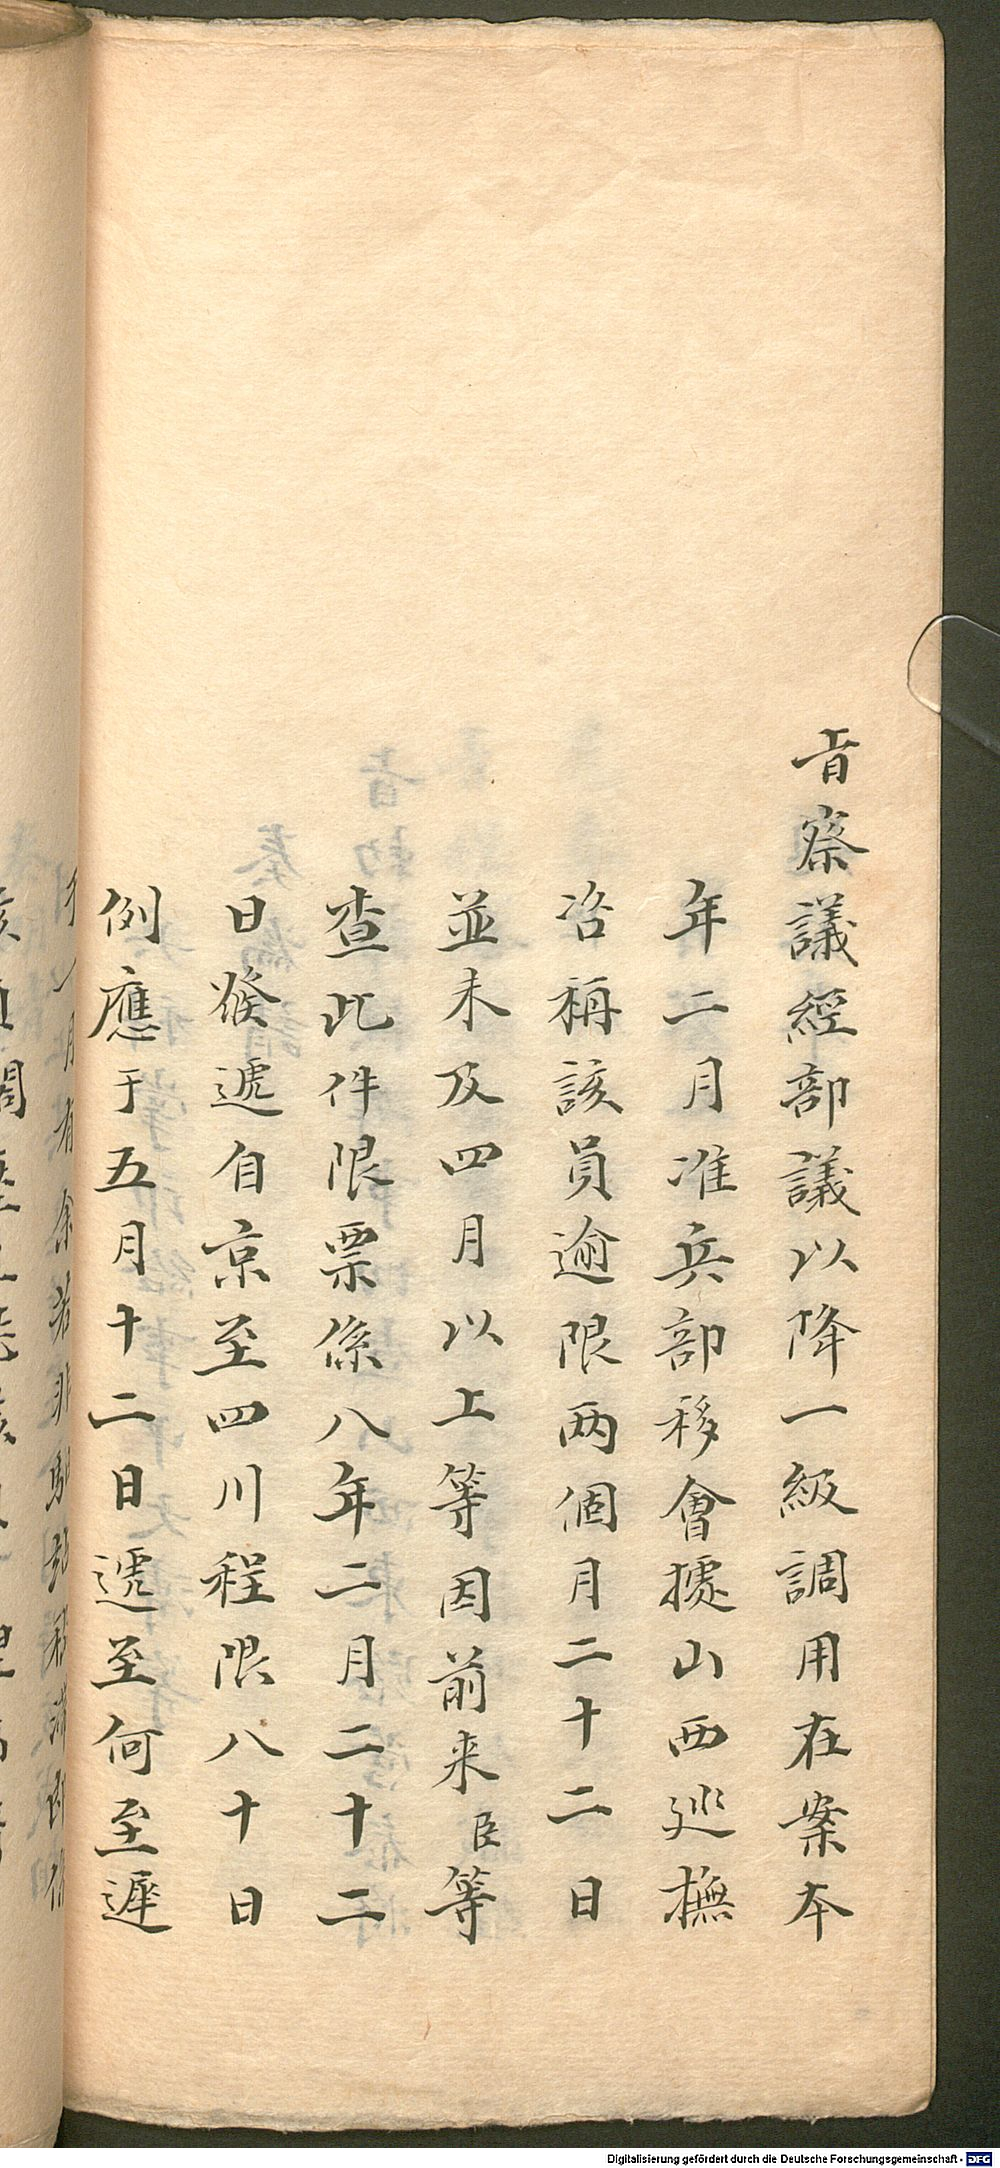 旨察議經部議以降一級調用在案本
年二月准兵部移會據山西巡撫
咨稱該員逾限两個月二十二日
並未及四月以上等因前来臣等
查此件限票係八年二月二十二
日發遞自京至四川程限八十日
例應于五月十二日遞至何至遲
Digitalisierung gefördert durch die Deutsche Forschungsgemeinschaft - DFG